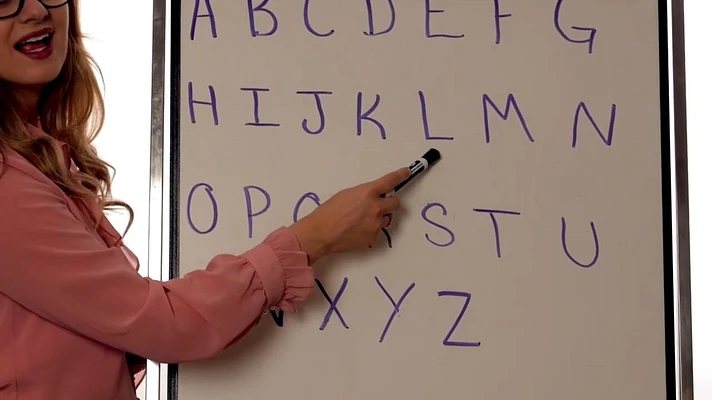 A B C D E F G
H I J K L M N
O P S T U
X Y Z